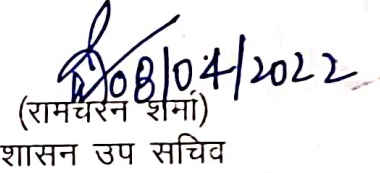 08/04/2022
(रामचरन शर्मा)
शासन उप सचिव